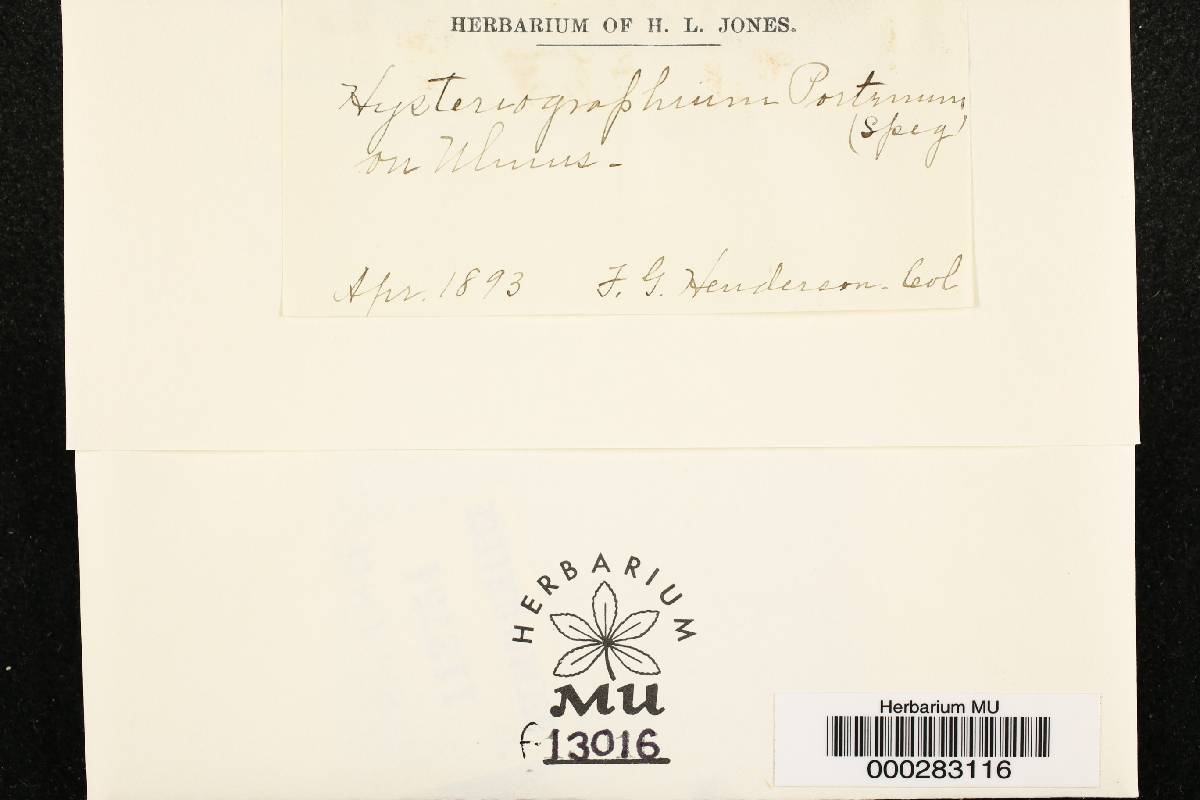 HERBARIUM OF H. L. JONES.
Hysteriographium Portenum
(Speg)
on Ulmus -
Apr. 1893 F. G. Henderson. Col
HERBARIUM
MU
f. 13016
Herbarium MU
000283116